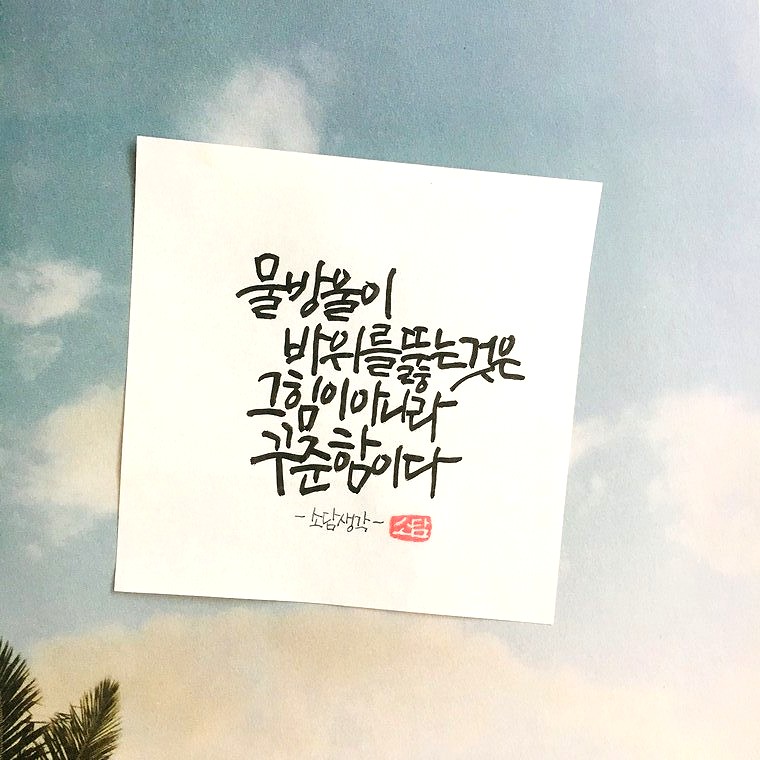 물방울이
바위를 뚫는 것은
그 힘이 아니라
꾸준함이다
-소담생각- 소담